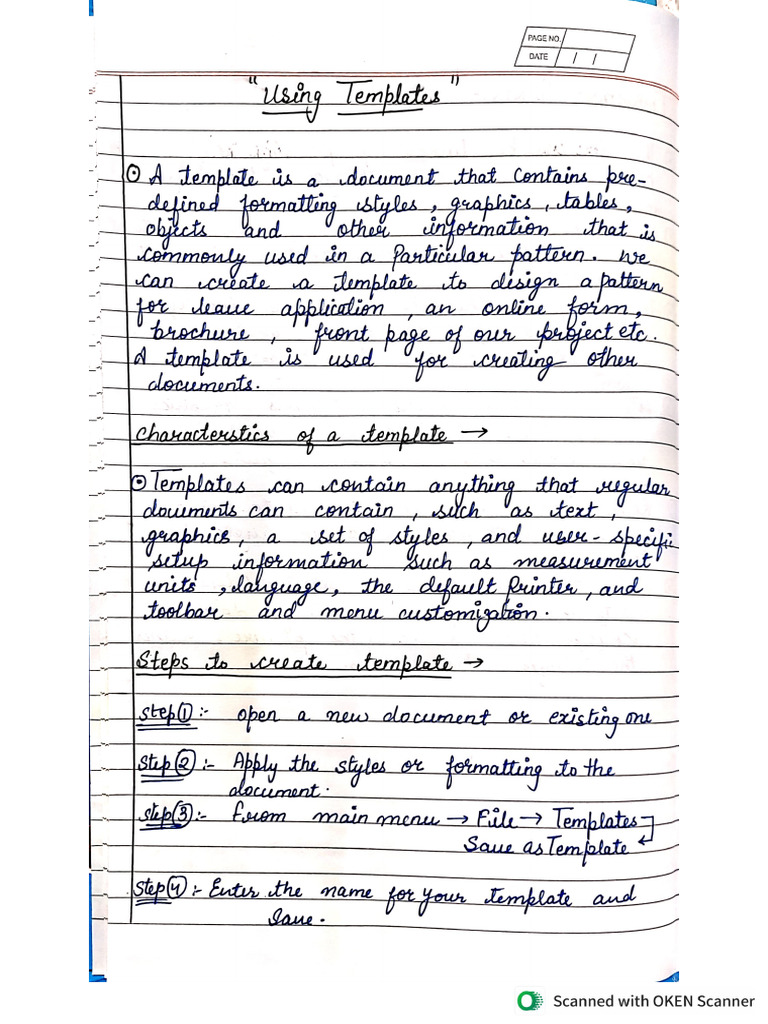 PAGE NO.
DATE / /
"Using Templates"
A template is a document that contains pre-
defined formatting styles, graphics, tables,
objects and other information that is
commonly used in a Particular pattern. we
can create a template to design a pattern
for leave application, an online form,
brochure, front page of our project etc.
A template is used for creating other
documents.
Characterstics of a template →
Templates can contain anything that regular
douments can contain, such as text,
graphics, a set of styles, and user-specific
setup information such as measurement
units, language, the default Printer, and
toolbar and menu customization.
Steps to create template →
Step 1 :- open a new document or existing one
Step 2 :- Apply the styles or formatting to the
document.
Step 3 :- From main menu → File → Templates
Save as Template
Step 4 :- Enter the name for your template and
Save.
Scanned with OKEN Scanner